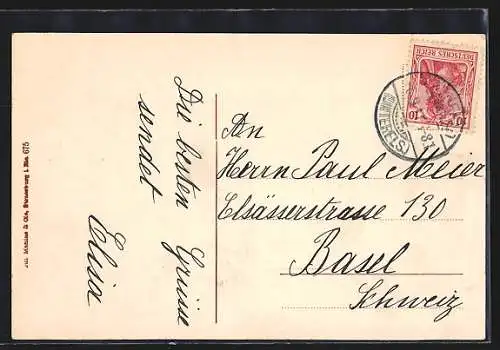 Die besten Grüsse
sendet
Elisa
An
Herrn Paul Meier
Elsässerstrasse 130
Basel
Schweiz
DEUTSCHES REICH
10 10
675